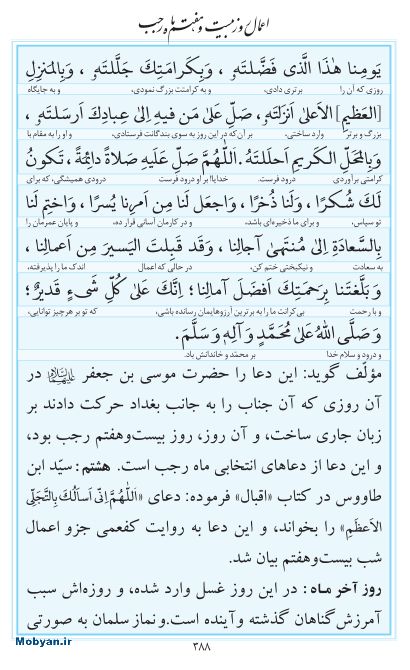 اعمال روز بیست و هفتم ماه رجب
يَومِنا هٰذَا الَّذى فَضَّلتَهُ، وَبِكَرامَتِكَ جَلَّلتَهُ، وَبِالمَنزِلِ
روزی که آن را برتری دادی، و به کرامتت بزرگ نمودی، و به جایگاه
[العَظيمِ] الاَعلىٰ اَنزَلتَهُ، صَلِّ عَلىٰ مَن فيهِ اِلىٰ عِبادِكَ اَرسَلتَهُ،
بزرگ و برتر وارد ساختی، بر آن‌که در این روز به سوی بندگانت فرستادی، و او را به مقام با
وَبِالمَحَلِّ الكَريمِ اَحلَلتَهُ. اَللّٰهُمَّ صَلِّ عَلَيهِ صَلاةً دائِمَةً، تَكونُ
کرامتی برآوردی درود فرست. خدایا! بر او درود فرست درودی همیشگی، که برای
لَكَ شُكرًا، وَلَنا ذُخرًا، وَاجعَل لَنا مِن اَمرِنا يُسرًا، وَاختِم لَنا
تو سپاس، و برای ما ذخیره‌ای باشد، و در کارمان آسانی قرار ده، و پایان عمرمان را
بِالسَّعادَةِ اِلىٰ مُنتَهىٰ آجالِنا، وَقَد قَبِلتَ اليَسيرَ مِن اَعمالِنا،
به سعادت و نیکبختی ختم کن، در حالی که اعمال اندک ما را پذیرفته،
وَبَلَّغتَنا بِرَحمَتِكَ اَفضَلَ آمالِنا؛ اِنَّكَ عَلىٰ كُلِّ شَىءٍ قَديرٌ؛
و با رحمت بی‌کرانت ما را به برترین آرزوهایمان رسانده باشی، که تو بر هرچیز توانایی،
وَصَلَّى اللّٰهُ عَلىٰ مُحَمَّدٍ وَآلِهِ وَسَلَّمَ.
و درود و سلام خدا بر محمّد و خاندانش باد.
مؤلّف گوید: این دعا را حضرت موسی بن جعفر علیهماالسلام در
آن روزی که آن جناب را به جانب بغداد حرکت دادند بر
زبان جاری ساخت، و آن روز، روز بیست‌وهفتم رجب بود،
و این دعا از دعاهای انتخابی ماه رجب است. هشتم: سیّد ابن
طاووس در کتاب «اقبال» فرموده: دعای «اَللّٰهُمَّ اِنّى اَساَلُكَ بِالتَّجَلِّى
الاَعظَمِ» را بخواند، و این دعا به روایت کفعمی جزو اعمال
شب بیست‌وهفتم بیان شد.
روز آخر ماه: در این روز غسل وارد شده، و روزه‌اش سبب
آمرزش گناهان گذشته و آینده است. و نماز سلمان به صورتی
۳۸۸
Mobyan.ir